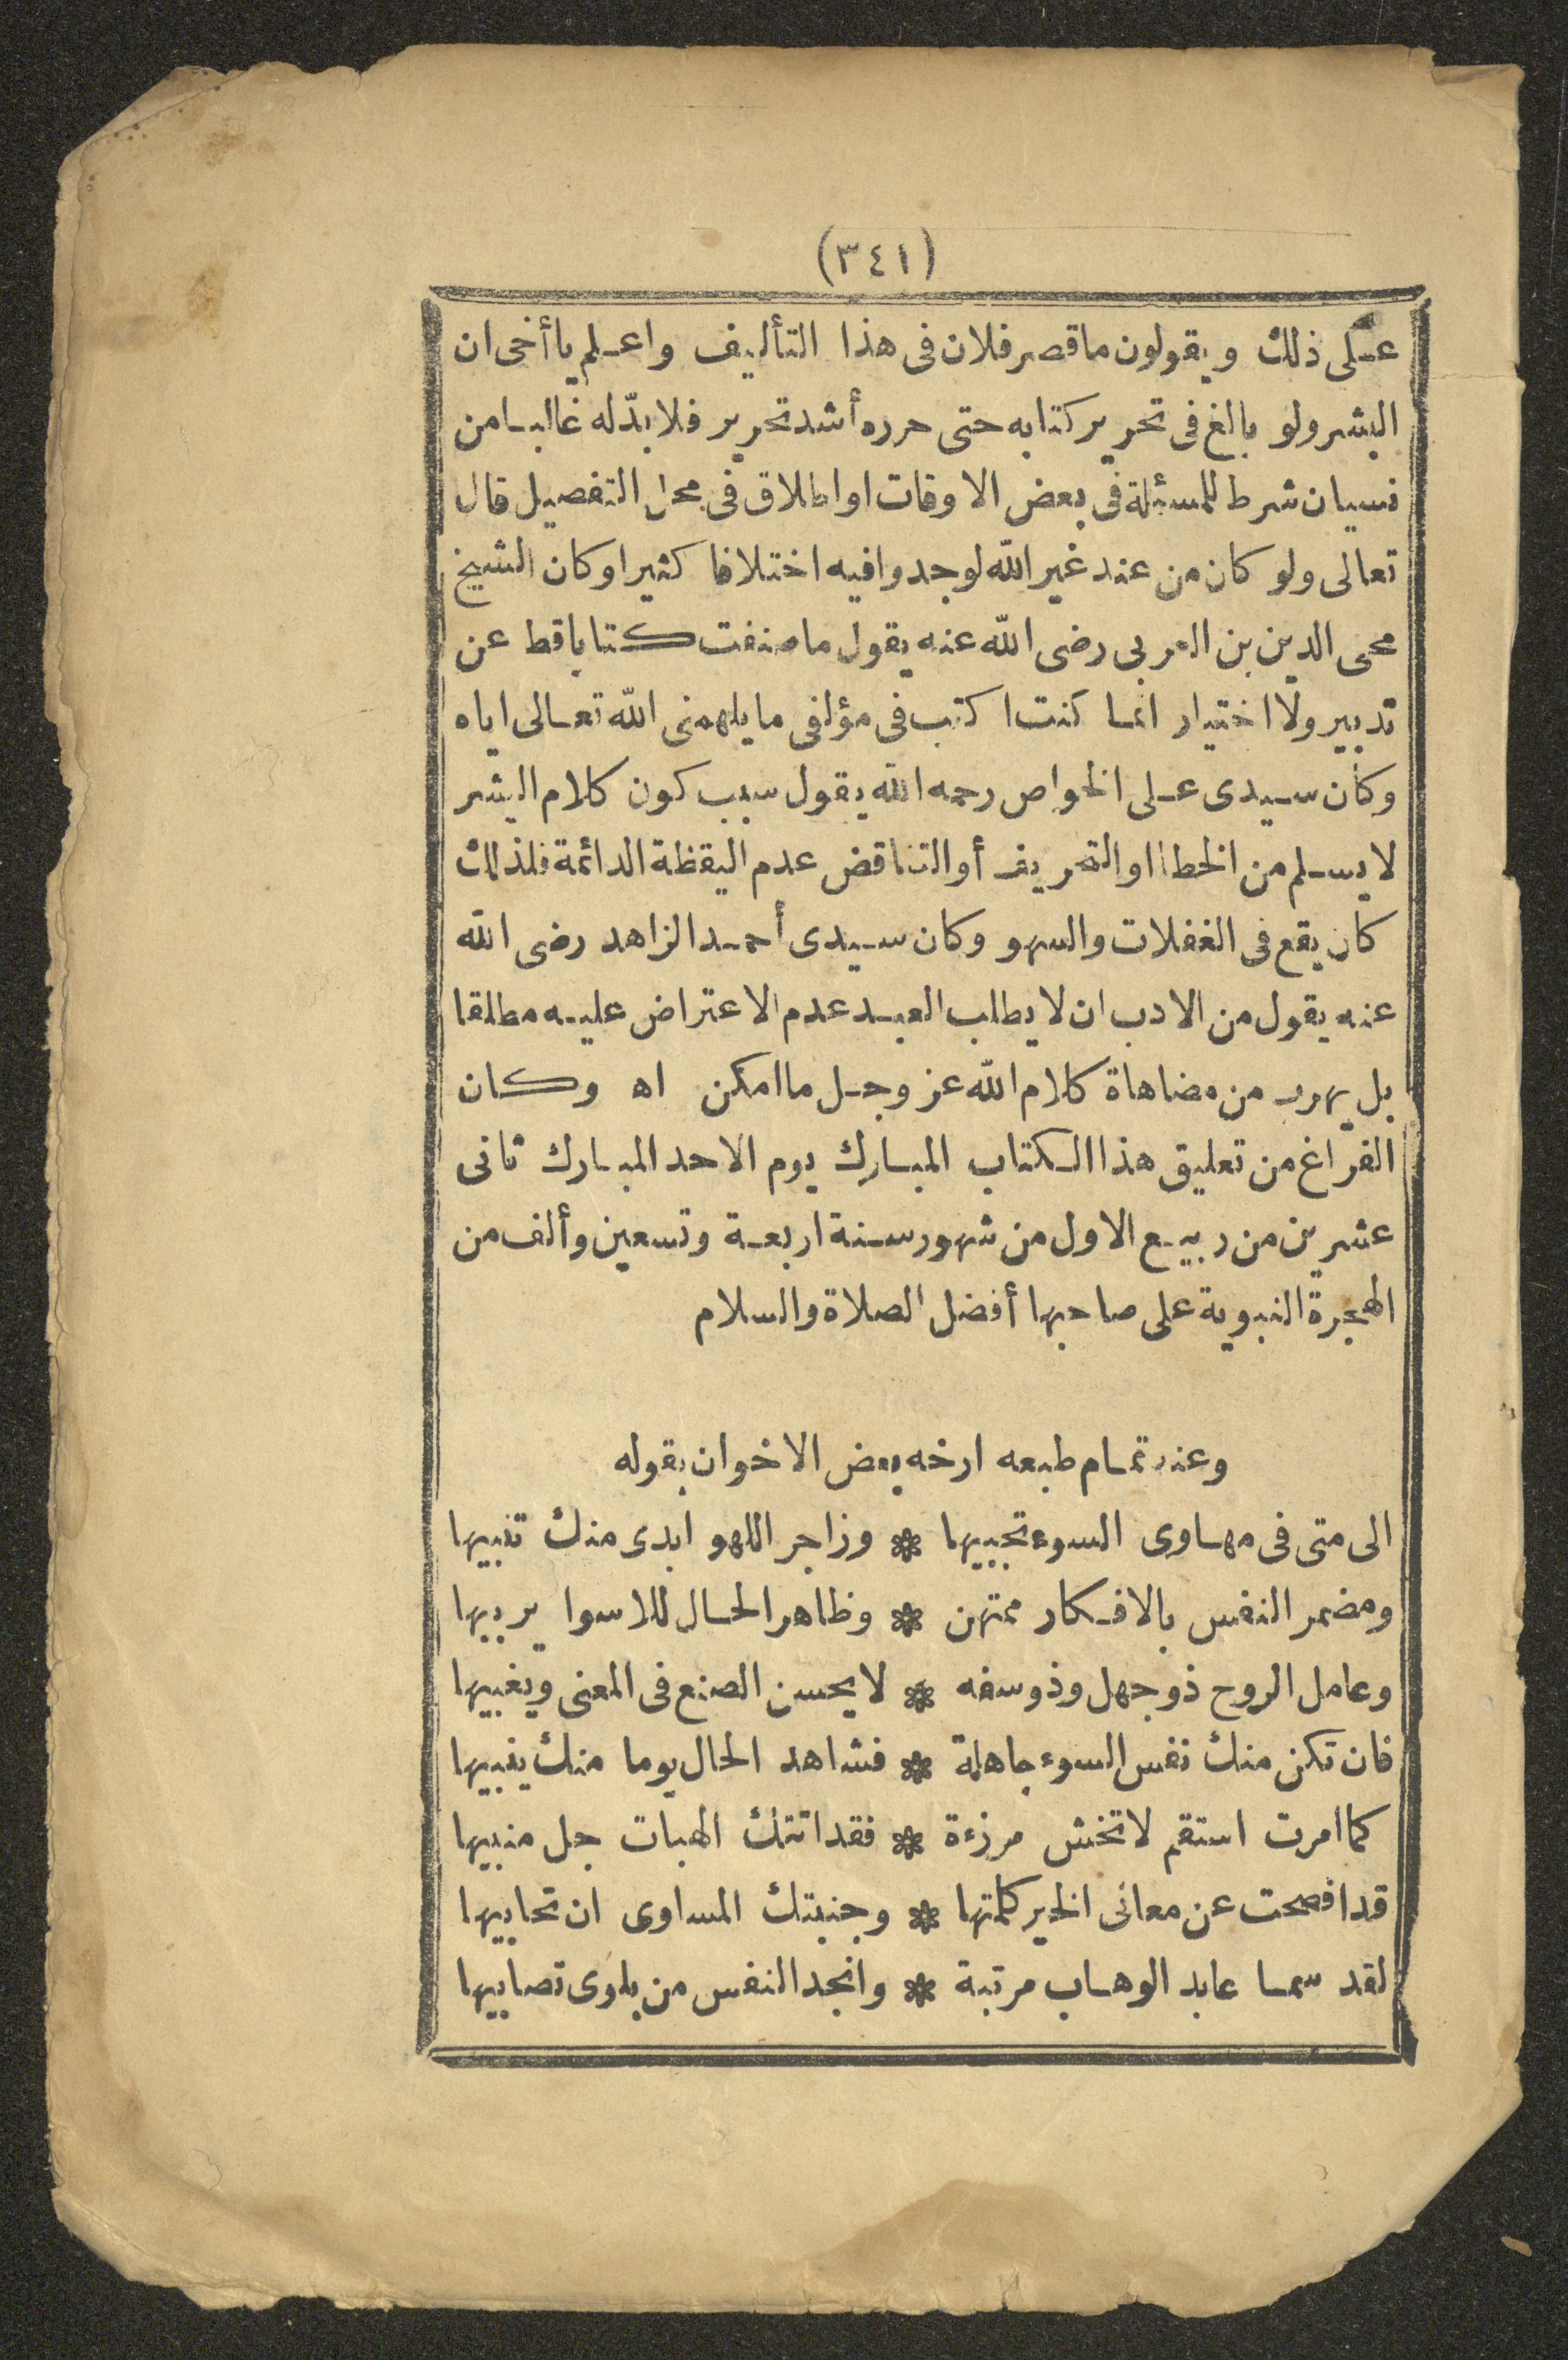 (٣٤١)
على ذلك ويقولون ماقصر فلان فى هذا التأليف واعلم يا أخى ان
البشر ولو بالغ فى تحرير كتابه حتى حرره أشد تحرير فلا بدّ له غالبا من
نسيان شرط للمسئلة فى بعض الاوقات او اطلاق فى محل التفصيل قال
تعالى ولو كان من عند غير الله لوجدوا فيه اختلافا كثيرا وكان الشيخ
محى الدين بن العربى رضى الله عنه يقول ما صنفت كتابا قط عن
تدبير ولا اختيار انما كنت اكتب فى مؤلفى ما يلهمنى الله تعالى اياه
وكان سيدى على الخواص رحمه الله يقول سبب كون كلام البشر
لا يسلم من الخطا او التحريف أو التناقض عدم اليقظة الدائمة فلذلك
كان يقع فى الغفلات والسهو وكان سيدى أحمد الزاهد رضى الله
عنه يقول من الادب ان لا يطلب العبد عدم الاعتراض عليه مطلقا
بل يهرب من مضاهاة كلام الله عز وجل ما امكن اه وكان
الفراغ من تعليق هذا الكتاب المبارك يوم الاحد المبارك ثانى
عشرين من ربيع الاول من شهور سنة اربعة وتسعين وألف من
الهجرة النبوية على صاحبها أفضل الصلاة والسلام
وعند تمام طبعه ارخه بعض الاخوان بقوله
الى متى فى مهاوى السوء تجبيها * وزاجر اللهو ابدى منك تنبيها
ومضمر النفس بالافكار ممتهن * وظاهر الحال للاسوا يربيها
وعامل الروح ذو جهل وذو سفه * لا يحسن الصنع فى المعنى ويغبيها
فان تكن منك نفس السوء جاهلة * فشاهد الحال يوما منك ينبيها
كما امرت استقم لا تخش مرزءة * فقد اتتك الهبات جل منبيها
قد افصحت عن معانى الخير كلمتها * وجنبتك المساوى ان تحابيها
لقد سما عابد الوهاب مرتبة * وانجد النفس من بلوى تصابيها